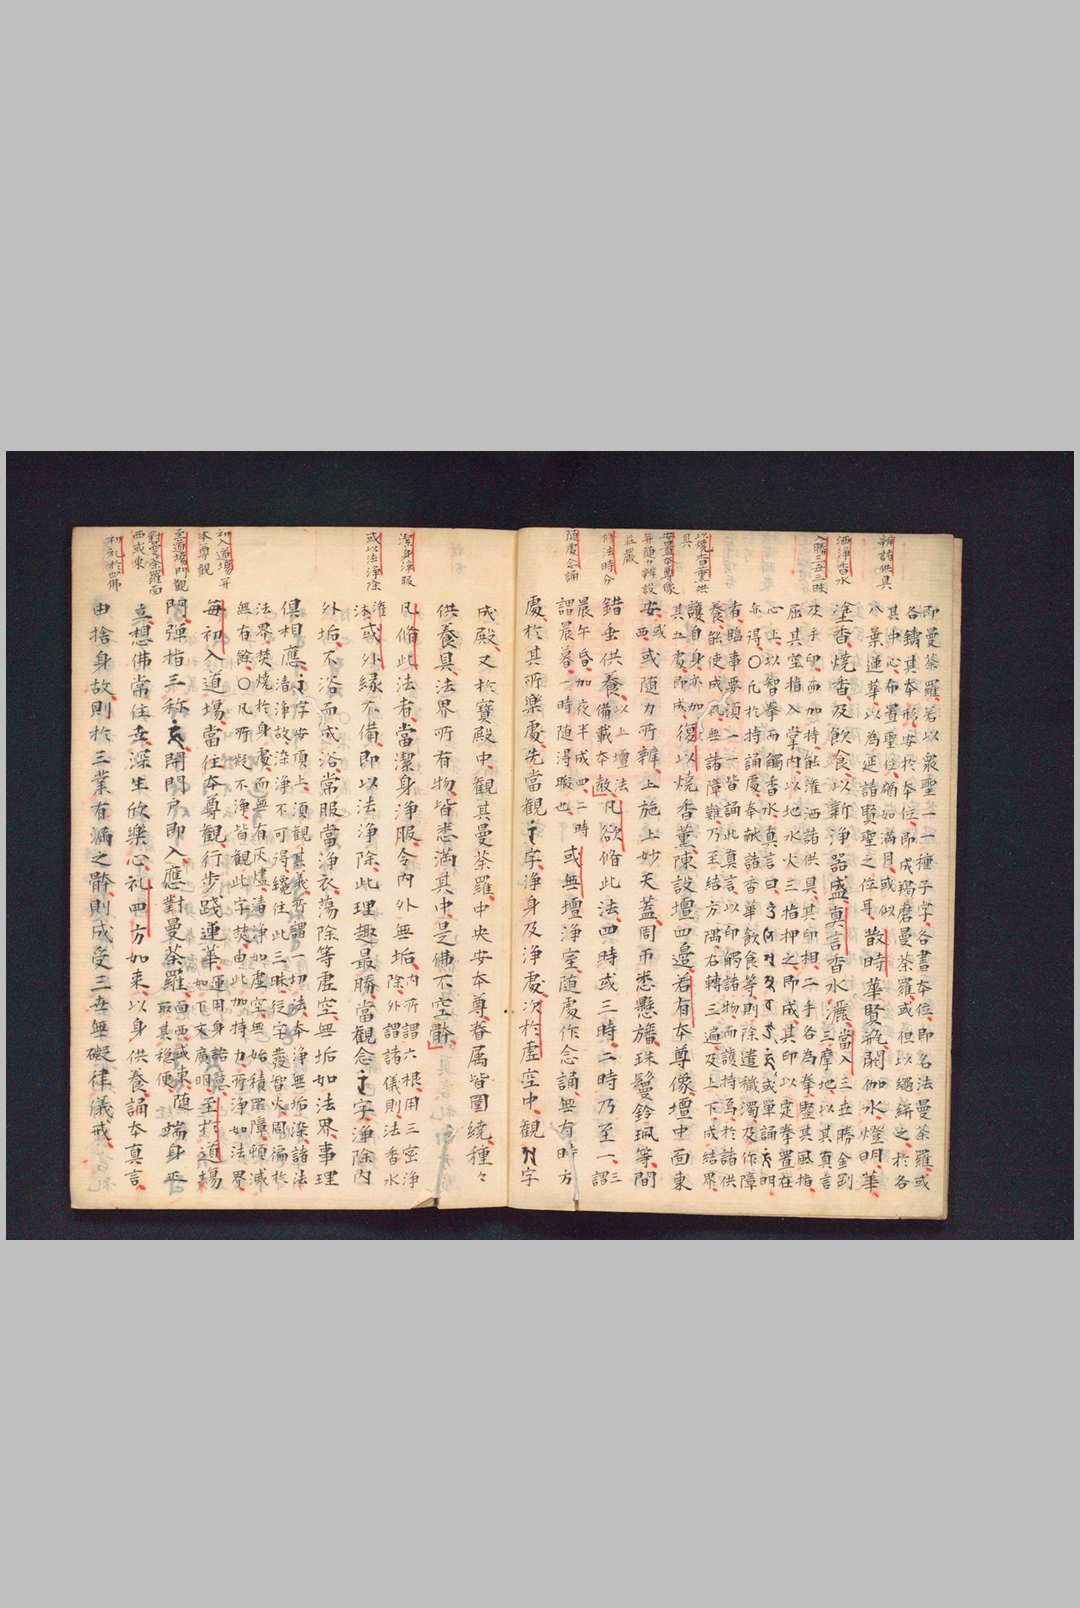 即曼荼羅若以衆聖一一種子字各書本位即名法曼荼羅或
各鑄其本形安於本位即成羯磨曼荼羅或但以繩絣之於各
其中心布置聖位猶如滿月或似
八葉蓮華以為延請賢聖之位耳散時華賢瓶閼伽水燈明等
塗香燒香及飲食以新淨器盛真言香水灑當入三世勝金剛
三摩地以其真言
及手印而加持能灑洒諸供具其印相二手各為拳竪其風指
屈其空指入掌内以地水火三指押之即成其印以定拳置在
心上以智拳而觸香水真言曰 或單誦 明
亦得〇凡於持誦處奉獻諸香華飲食等則除遣穢濁及作障
者臨事要須一一皆誦此真言以印觸諸物而護持焉於諸供
養能使成就無諸障難乃至結方隅右轉三遍及上下成結界
護自身亦加
其五處即成復以燒香薰陳設壇四邊若有本尊像壇中面東
安或
西或隨力所辦上施上妙天蓋周帀悉懸旛珠鬘鈴珮等間
錯垂供養以上壇法
備載本教凡欲脩此法四時或三時二時乃至一謂三
晨午昏加夜半成四二時
謂晨暮一時隨得暇也或無壇淨室隨處作念誦無有時方
處於其所樂處先當觀 字淨身及淨處次於虛空中觀 字
辦諸供具
洒淨香水
入勝三世三昧
以燒香薰供
具
安置本尊像
并隨力辦設
莊嚴
修法時分
隨處念誦
成殿又於寶殿中觀其曼荼羅中央安本尊眷屬皆圍繞種々
供養具法界所有物皆悉滿其中是佛不空
凡脩此法者當潔身淨服令内外無垢内所謂六根用三密淨
除外謂諸儀則法香水
灌
沐或外緣不備即以法淨除此理趣最勝當觀念 字淨除内
外垢不浴而成浴常服當淨衣蕩除等虛空無垢如法界事理
俱相應 字安頂上須觀其義所謂一切法本淨無垢染諸法
清淨故染淨不可得纔住此三昧從字發智火周遍於
法界焚燒於身處而無有灰燼清淨如虛空無始積罪障頓滅
無有餘〇凡所疑不淨皆觀此字焚由此加持力所淨如法界
每初入道場當住本尊觀行步踐蓮華運用身諸
如下文廣明至於道場
門彈指三称 開門戶即入應對曼荼羅面西或東隨
取其穩便端身平
立想佛常住世深生欣樂心礼四方如來以身供養誦本真言
由捨身故則於三業有漏之體則成受三世無礙律儀戒
潔身淨服
或以法淨除
初入道場并
本尊觀
至道場門觀
對曼荼羅面
西或東
初礼於四佛